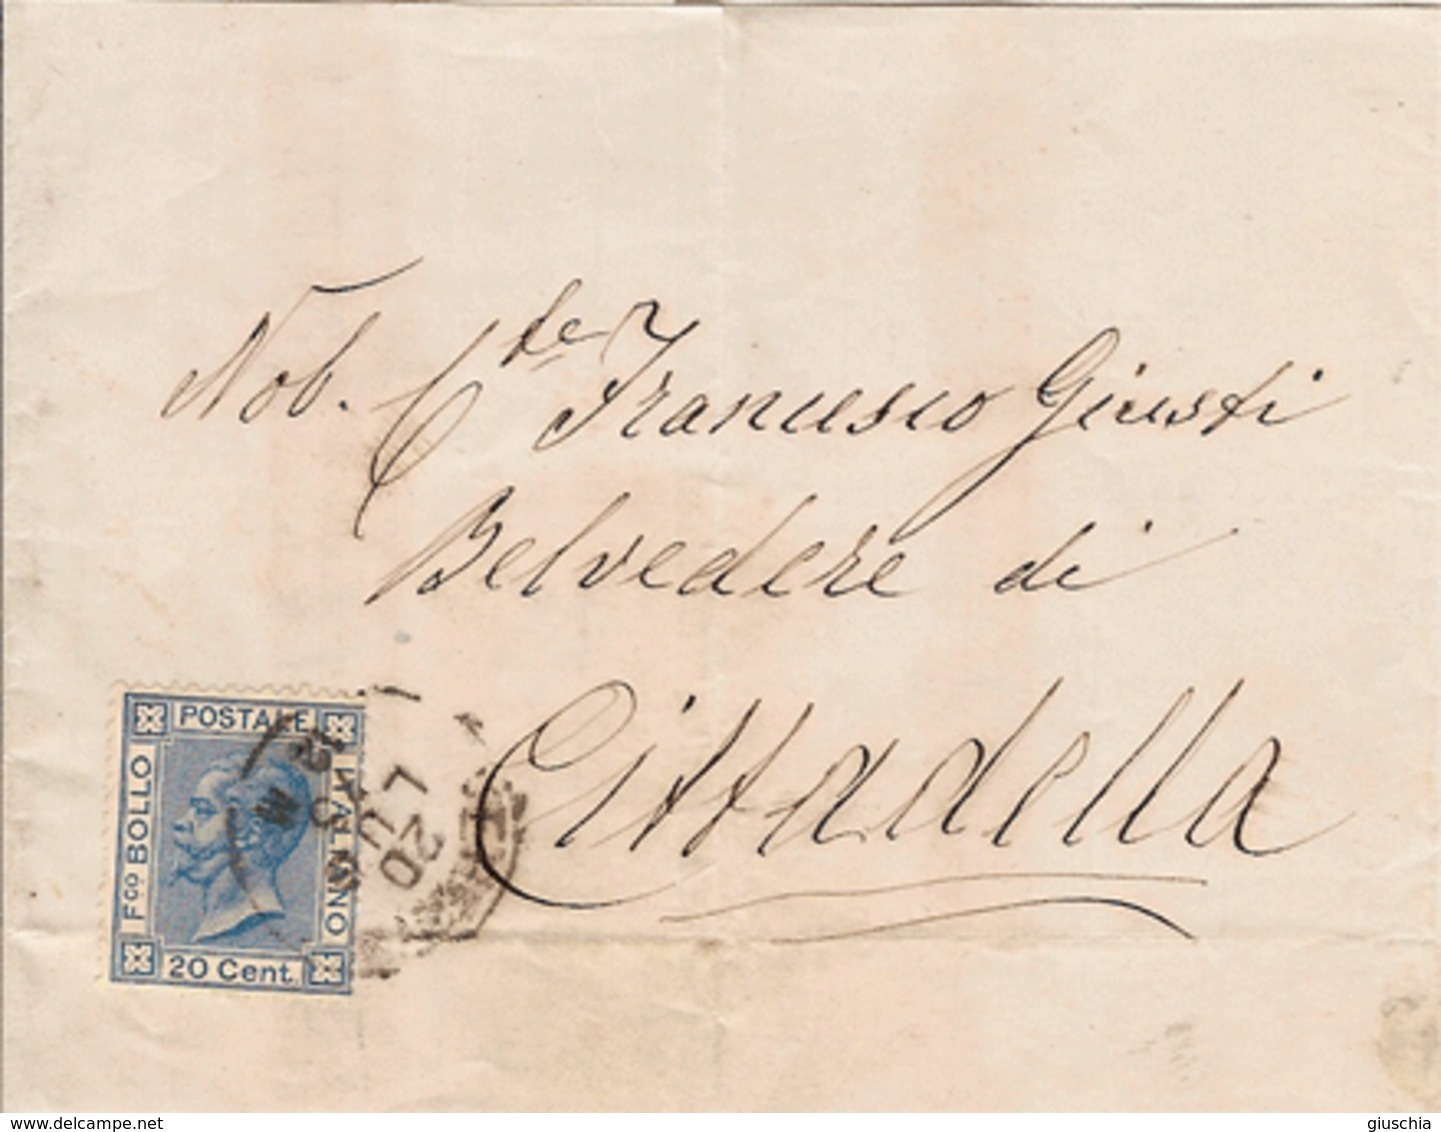 Nob. C.te Francesco Giusti
Belvedere di
Cittadella
POSTALE
Fco BOLLO
ITALIANO
20 Cent.
20
LU
M
www.delcampe.net
giuschia